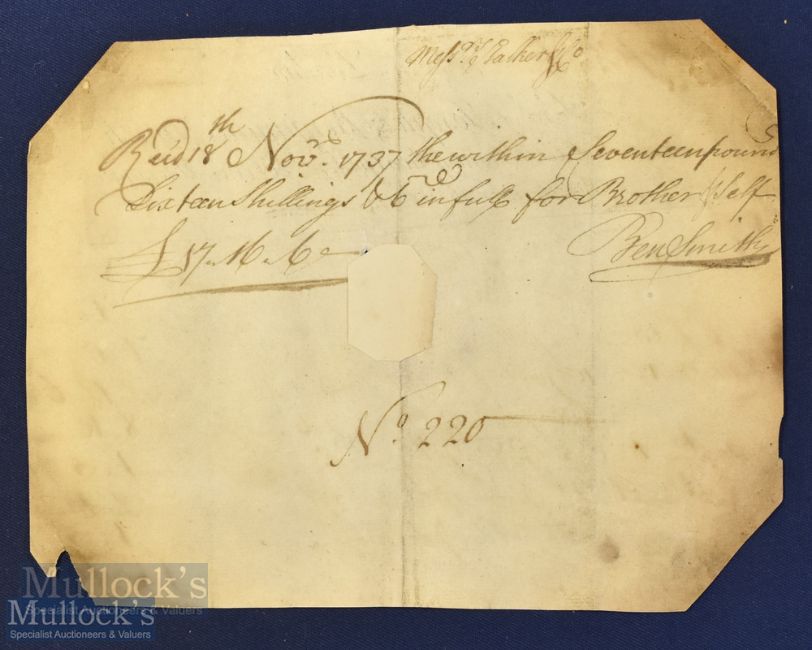 Messrs. & Co
Recd 18th Novr. 1737 the within Seventeen pound
Sixteen Shillings & 6 in full for Brother & Self
£17 . 16 . 6 Ben Smith
No. 220
Mullock's
Specialist Auctioneers & Valuers
Mullock's
Specialist Auctioneers & Valuers